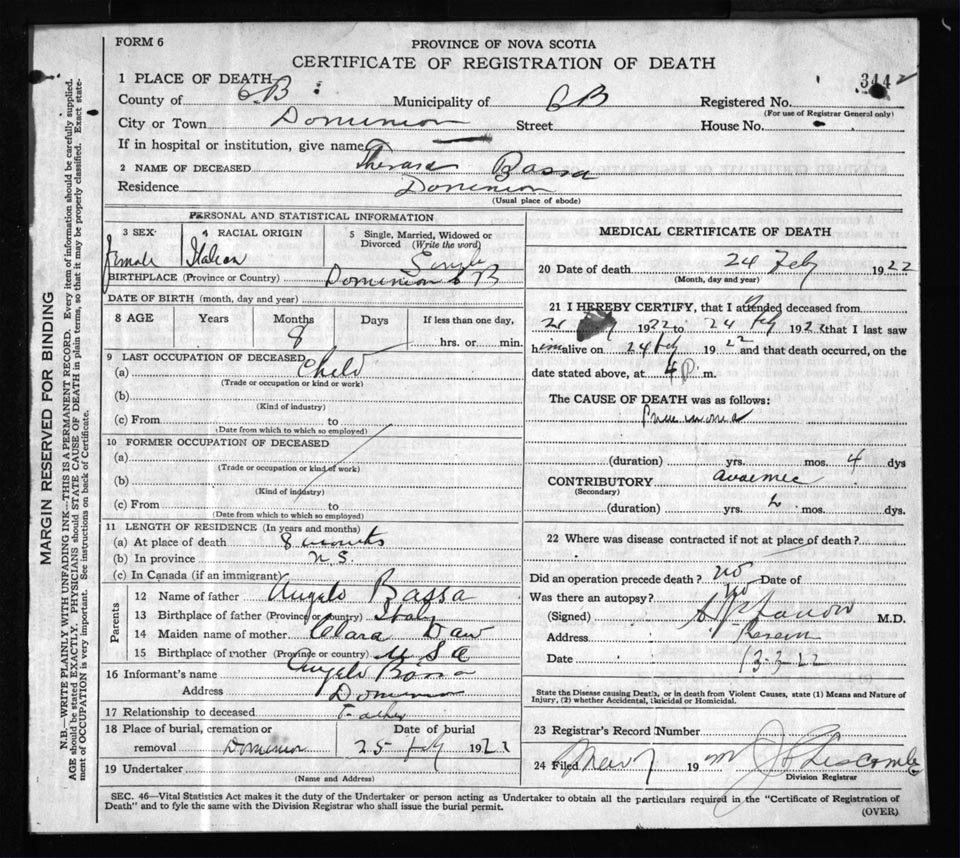 FORM 6
PROVINCE OF NOVA SCOTIA
CERTIFICATE OF REGISTRATION OF DEATH
344
1 PLACE OF DEATH
County of CB Municipality of CB Registered No.
(For use of Registrar General only)
City or Town Dominion Street House No.
If in hospital or institution, give name
2 NAME OF DECEASED Therasa Bassa
Residence Dominion
(Usual place of abode)
PERSONAL AND STATISTICAL INFORMATION
3 SEX 4 RACIAL ORIGIN 5 Single, Married, Widowed or Divorced (Write the word)
female Italian Single
BIRTHPLACE (Province or Country) Dominion CB
DATE OF BIRTH (month, day and year)
8 AGE Years Months Days If less than one day,
8 hrs. or min.
9 LAST OCCUPATION OF DECEASED
(a) Child
(Trade or occupation or kind or work)
(b)
(Kind of industry)
(c) From to
(Date from which to which so employed)
10 FORMER OCCUPATION OF DECEASED
(a)
(Trade or occupation or kind of work)
(b)
(Kind of industry)
(c) From to
(Date from which to which so employed)
11 LENGTH OF RESIDENCE (In years and months)
(a) At place of death 8 months
(b) In province N.S.
(c) In Canada (if an immigrant)
Parents
12 Name of father Angelo Bassa
13 Birthplace of father (Province or country) Italy
14 Maiden name of mother Clara Daw
15 Birthplace of mother (Province or country) U S A
16 Informant's name Angelo Bassa
Address Dominion
17 Relationship to deceased Father
18 Place of burial, cremation or removal Dominion Date of burial 25 Feby 1922
19 Undertaker
(Name and Address)
MEDICAL CERTIFICATE OF DEATH
20 Date of death 24 Feby 1922
(Month, day and year)
21 I HEREBY CERTIFY, that I attended deceased from
1922 to 24 Feby 1922 that I last saw
him alive on 24 Feby 1922 and that death occurred, on the
date stated above, at 4 P m.
The CAUSE OF DEATH was as follows:
Pneumonia
(duration) yrs. mos. 4 dys
CONTRIBUTORY
(Secondary)
(duration) yrs. mos. dys.
22 Where was disease contracted if not at place of death?
Did an operation precede death? no Date of
Was there an autopsy? no
(Signed) M.D.
Address
Date 13-3-22
State the Disease causing Death, or in death from Violent Causes, state (1) Means and Nature of
Injury, (2) whether Accidental, Suicidal or Homicidal.
23 Registrar's Record Number
24 Filed 19
Division Registrar
SEC. 46—Vital Statistics Act makes it the duty of the Undertaker or person acting as Undertaker to obtain all the particulars required in the "Certificate of Registration of
Death" and to fyle the same with the Division Registrar who shall issue the burial permit.
(OVER)
MARGIN RESERVED FOR BINDING
N.B.—WRITE PLAINLY WITH UNFADING INK—THIS IS A PERMANENT RECORD. Every item of information should be carefully supplied.
AGE should be stated EXACTLY. PHYSICIANS should STATE CAUSE OF DEATH in plain terms, so that it may be properly classified. Exact state-
ment of OCCUPATION is very important. See instructions on back of Certificate.